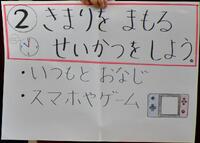 ② きまりを まもる
せいかつを しよう。
・いつもと おなじ
・スマホや ゲーム